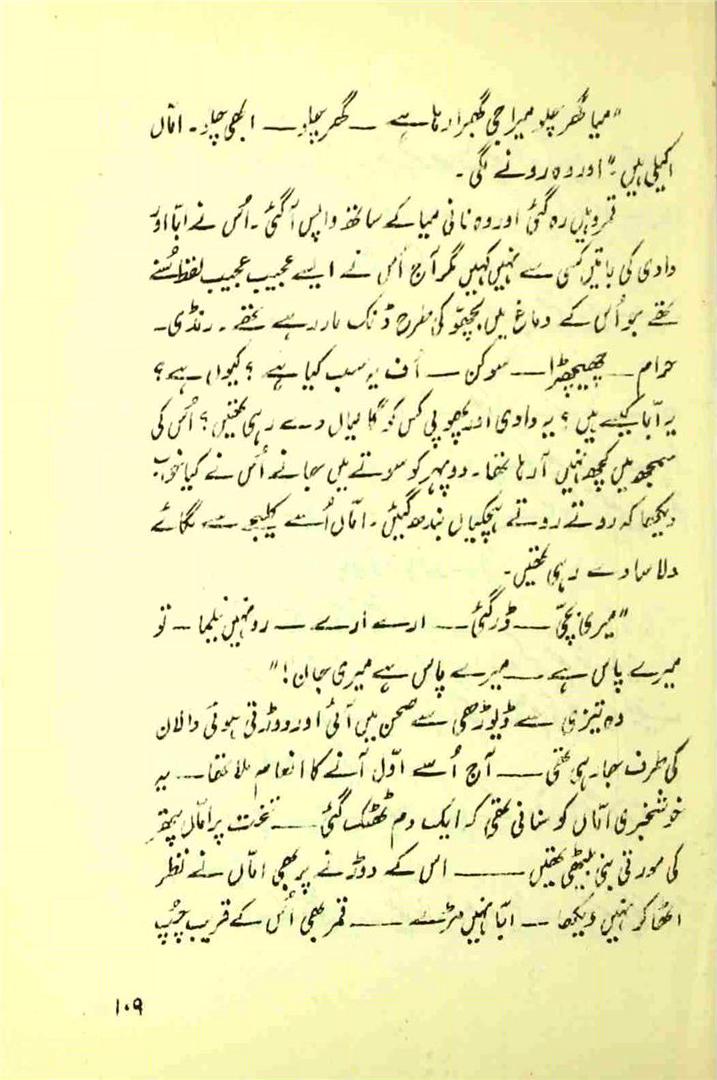 "میا گھر چلو میرا جی گھبرا رہا ہے — گھر چلو — ابھی چلو۔ اماں
اکیلی ہیں۔" اور وہ رونے لگی۔
قمر وہیں رہ گئی اور وہ نانی میا کے ساتھ واپس آ گئی۔ اُس نے ابا اور
دادی کی باتیں کسی سے نہیں کہیں مگر آج اُس نے ایسے عجیب عجیب لفظ سُنے
تھے جو اُس کے دماغ میں بچھّو کی طرح ڈنک مار رہے تھے۔ رنڈی۔
حرام — چھیچھڑا — سوکن — اُف یہ سب کیا ہے؟ کیوں ہے؟
یہ ابّا کیسے ہیں؟ یہ دادی اور پھوپی کس کو گالیاں دے رہی تھیں؟ اُس کی
سمجھ میں کچھ نہیں آ رہا تھا۔ دوپہر کو سوتے میں جانے اُس نے کیا خواب
دیکھا کہ روتے روتے ہچکیاں بندھ گئیں۔ اماں اُسے کلیجہ سے لگائے
دلاسا دے رہی تھیں۔
"میری بچّی — ڈر گئی — ارے ارے — رو نہیں نیلما — تو
میرے پاس ہے — میرے پاس ہے میری جان!"
وہ تیزی سے ڈیوڑھی سے صحن میں آئی اور دوڑتی ہوئی دالان
کی طرف جا رہی تھی — آج اُسے اوّل آنے کا انعام ملا تھا — یہ
خوشخبری اماں کو سنانی تھی کہ ایک دم ٹھٹک گئی — تخت پر اماں پتھر
کی مورتی بنی بیٹھی تھیں — اس کے دوڑنے پر بھی اماں نے نظر
اٹھا کر نہیں دیکھا — ابا نہیں مڑے — قمر بھی اُس کے قریب چُپ
۱۰۹